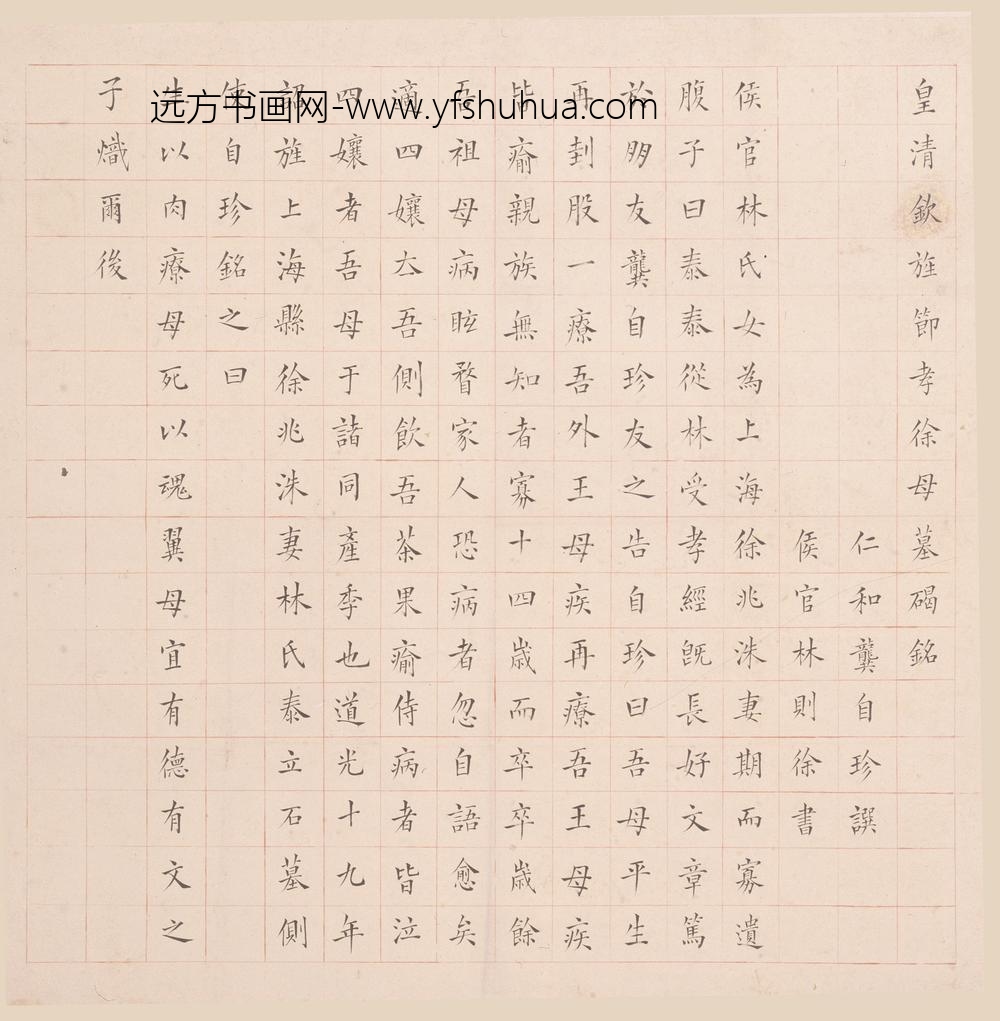 皇清欽旌節孝徐母墓碣銘
仁和龔自珍譔
侯官林則徐書
侯官林氏女為上海徐兆洙妻期而寡遺
腹子曰泰泰從林受孝經既長好文章篤
於朋友龔自珍友之告自珍曰吾母平生
再刲股一療吾外王母疾再療吾王母疾
皆瘉親族無知者寡十四歲而卒卒歲餘
吾祖母病眩瞀家人恐病者忽自語愈矣
適四孃厺吾側飲吾茶果瘉侍病者皆泣
四孃者吾母于諸同產季也道光十九年
詔旌上海縣徐兆洙妻林氏泰立石墓側
使自珍銘之曰
生以肉療母死以魂翼母宜有德有文之
子熾爾後
远方书画网-www.yfshuhua.com